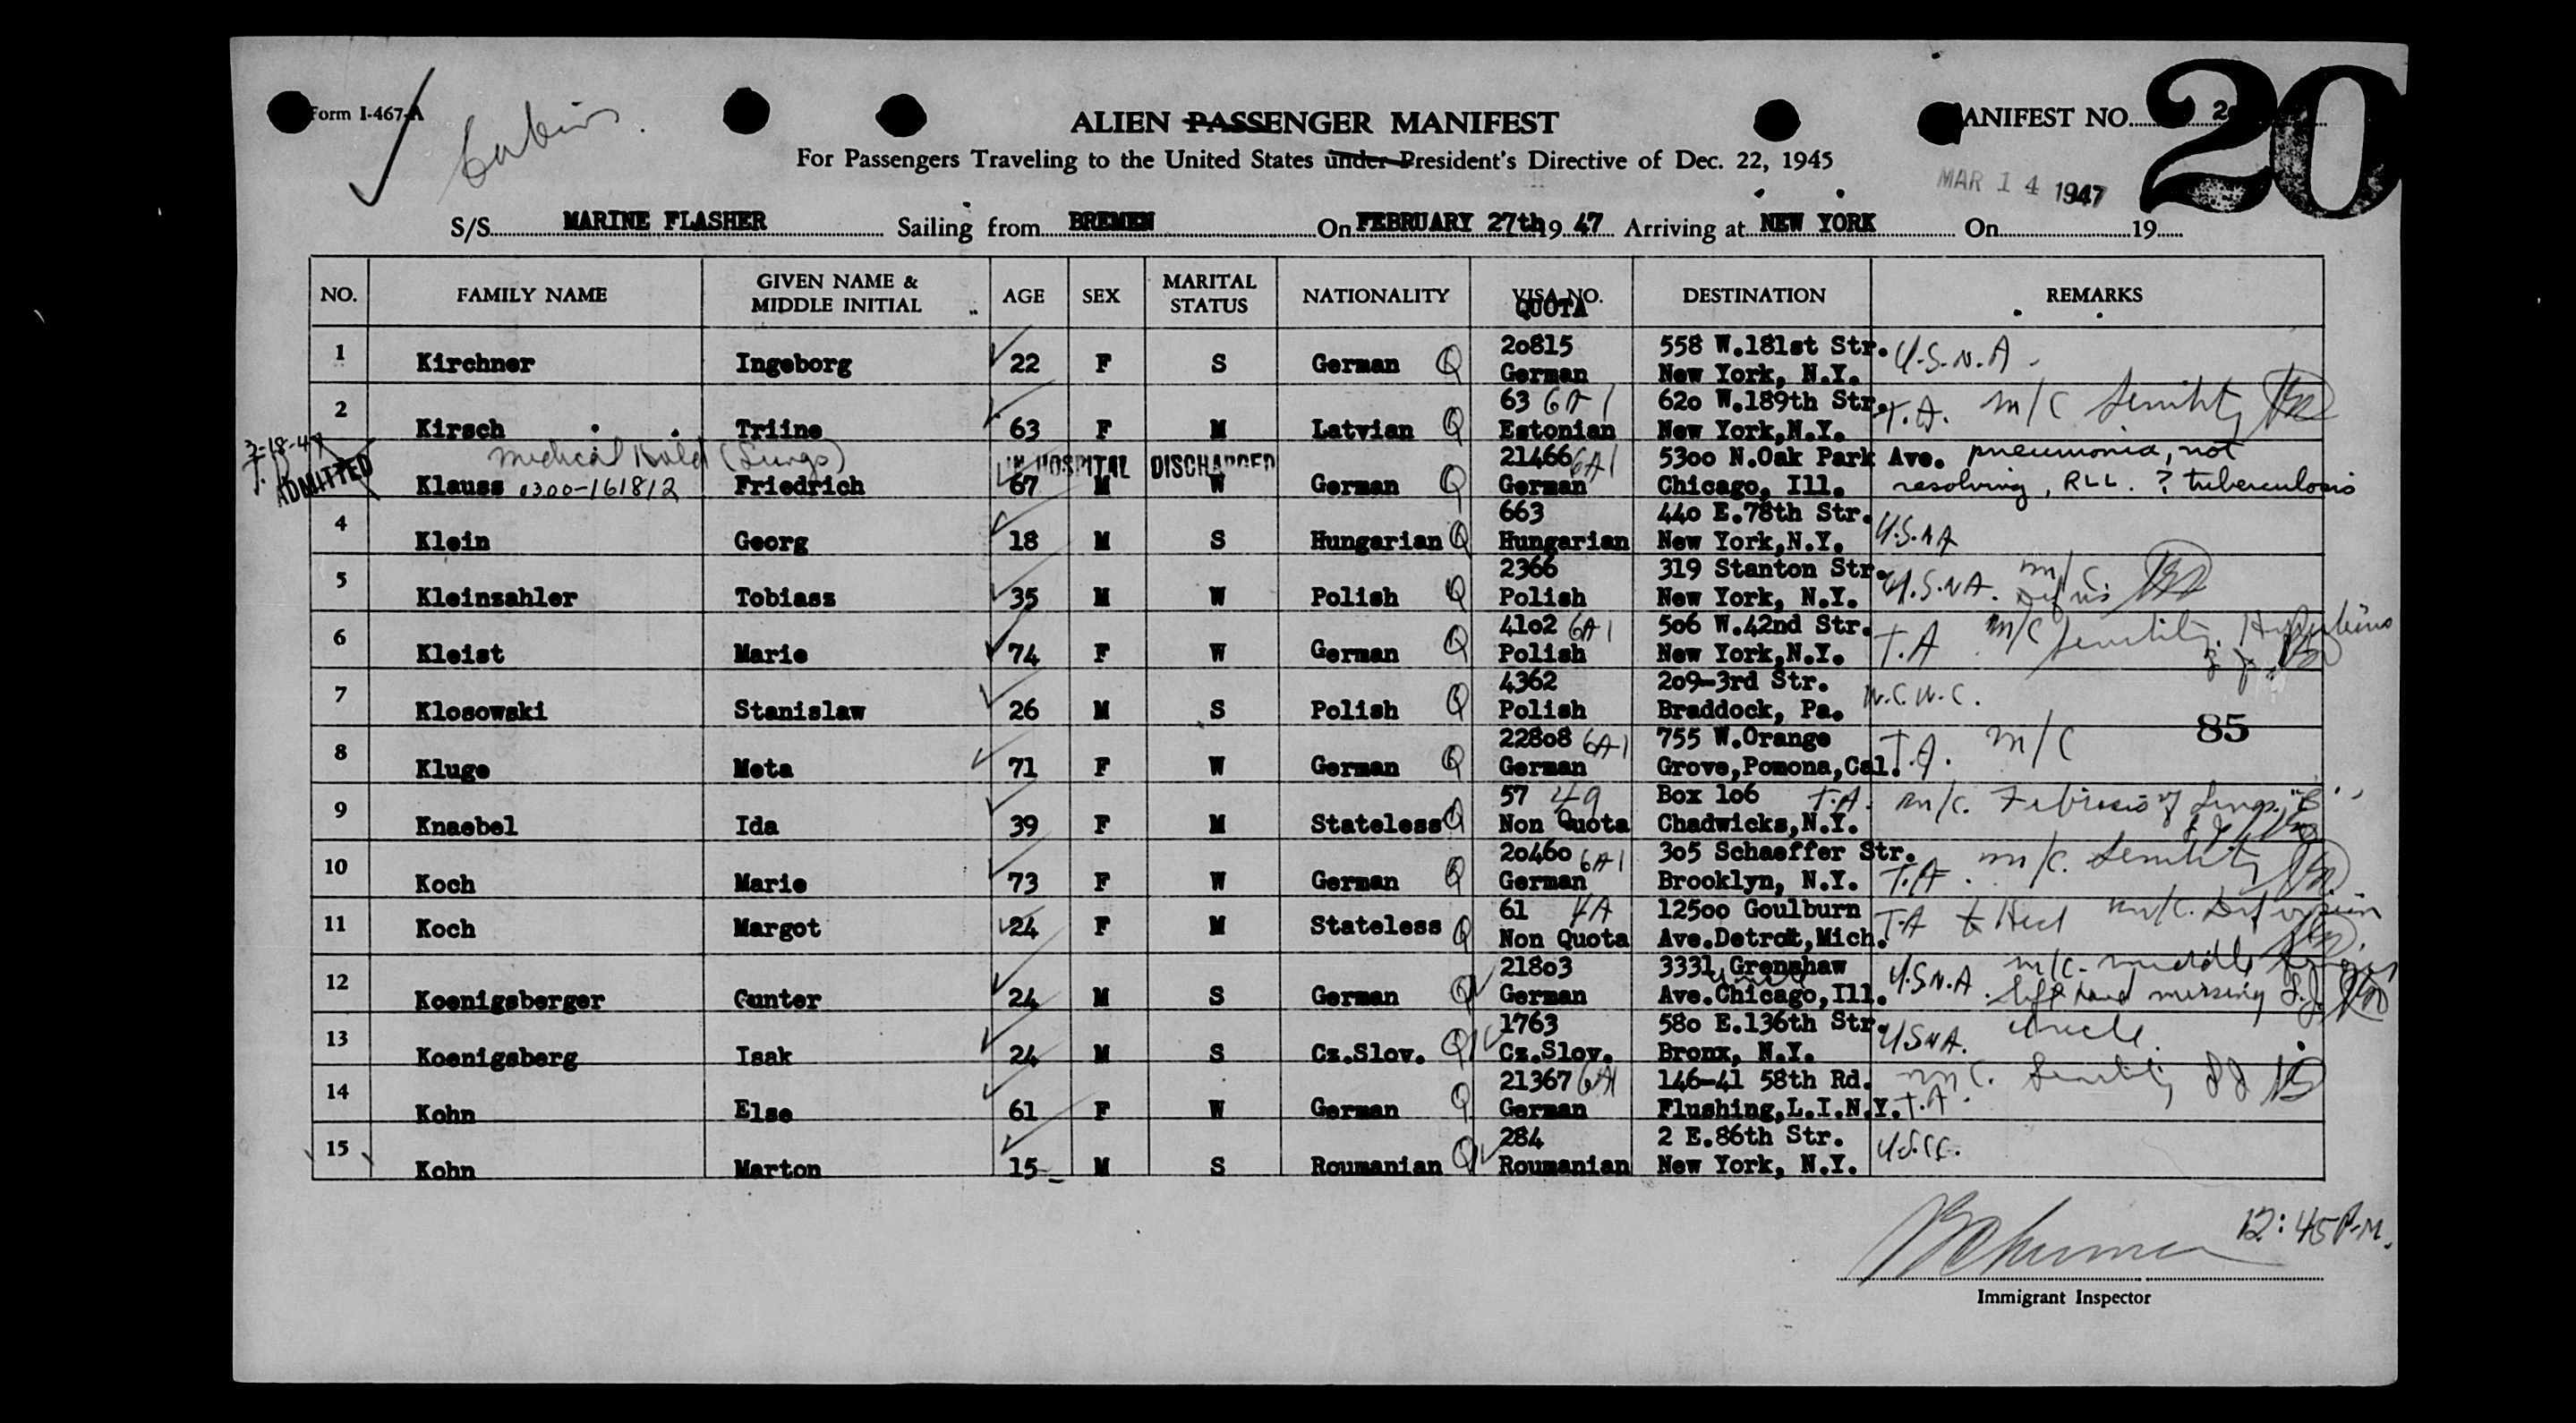 Form I-467-A
Cabin.
ALIEN PASSENGER MANIFEST
MANIFEST NO. 20
20
For Passengers Traveling to the United States under President's Directive of Dec. 22, 1945
MAR 14 1947
S/S MARINE FLASHER Sailing from BREMEN On FEBRUARY 27th 19 47 Arriving at NEW YORK On 19
NO. FAMILY NAME GIVEN NAME & MIDDLE INITIAL AGE SEX MARITAL STATUS NATIONALITY VISA NO. QUOTA DESTINATION REMARKS
1 Kirchner Ingeborg 22 F S German Q 20815 German 558 W.181st Str. New York, N.Y. U.S.N.A.
2 Kirsch Triine 63 F M Latvian Q 63 6A1 Estonian 620 W.189th Str. New York,N.Y. T.A. m/c Senility
3-18-47 ADMITTED
medical Hold (Lungs) IN HOSPITAL DISCHARGED
Klauss 0300-161812 Friedrich 67 M W German Q 21466 6A1 German 5300 N.Oak Park Ave. Chicago, Ill. pneumonia, not resolving, RLL. ? tuberculosis
4 Klein Georg 18 M S Hungarian Q 663 Hungarian 440 E.78th Str. New York,N.Y. U.S.N.A
5 Kleinzahler Tobiasz 35 M W Polish Q 2366 Polish 319 Stanton Str. New York, N.Y. U.S.N.A. m/c
6 Kleist Marie 74 F W German Q 4102 6A1 Polish 506 W.42nd Str. New York,N.Y. T.A m/c Senility.
7 Klosowski Stanislaw 26 M S Polish Q 4362 Polish 209-3rd Str. Braddock, Pa. N.C.W.C.
85
8 Kluge Meta 71 F W German Q 22808 6A1 German 755 W.Orange Grove,Pomona,Cal. T.A. m/c
9 Knaebel Ida 39 F M Stateless Q 57 Non Quota Box 106 Chadwicks,N.Y. T.A. m/c. Fibrosis of Lungs.
10 Koch Marie 73 F W German Q 20460 6A1 German 305 Schaeffer Str. Brooklyn, N.Y. T.A. m/c. Senility
11 Koch Margot 24 F M Stateless Q 61 4A Non Quota 12500 Goulburn Ave.Detrot,Mich. T.A m/c. Def vision
12 Koenigsberger Gunter 24 M S German Q 21803 German 3331 Grenshaw Ave.Chicago,Ill. uncle U.S.N.A. m/c. middle finger left hand missing
13 Koenigsberg Isak 24 M S Cz.Slov. Q 1763 Cz.Slov. 580 E.136th Str. Bronx, N.Y. USNA. Uncle.
14 Kohn Else 61 F W German Q 21367 6A1 German 146-41 58th Rd. Flushing,L.I.N.Y. T.A. m/c. Senility
15 Kohn Marton 15 M S Roumanian Q 284 Roumanian 2 E.86th Str. New York, N.Y.
12:45 P.M.
Immigrant Inspector